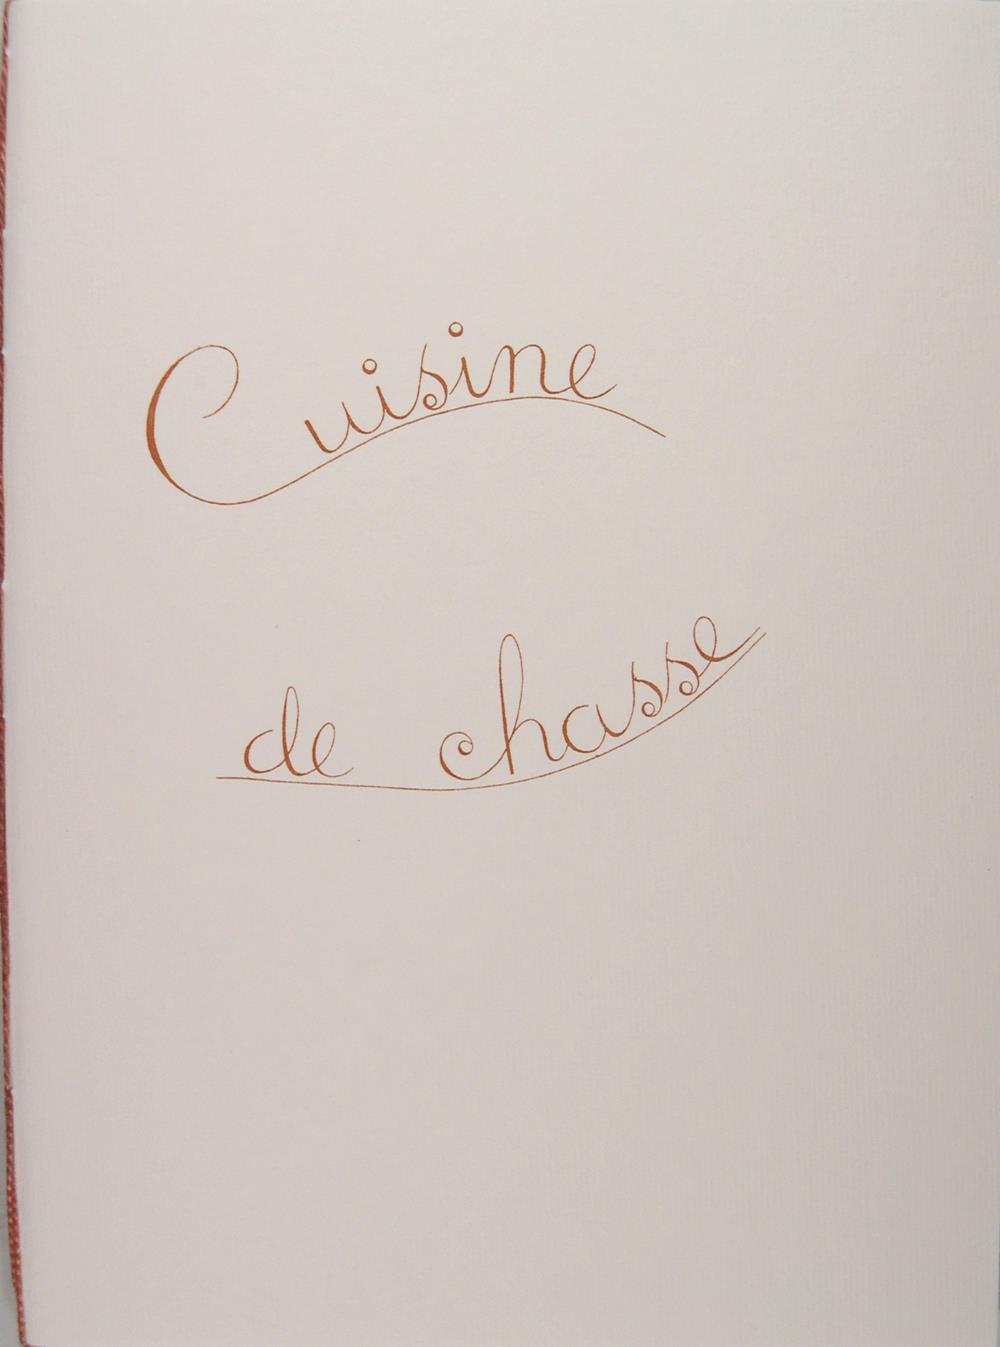 Cuisine
de chasse